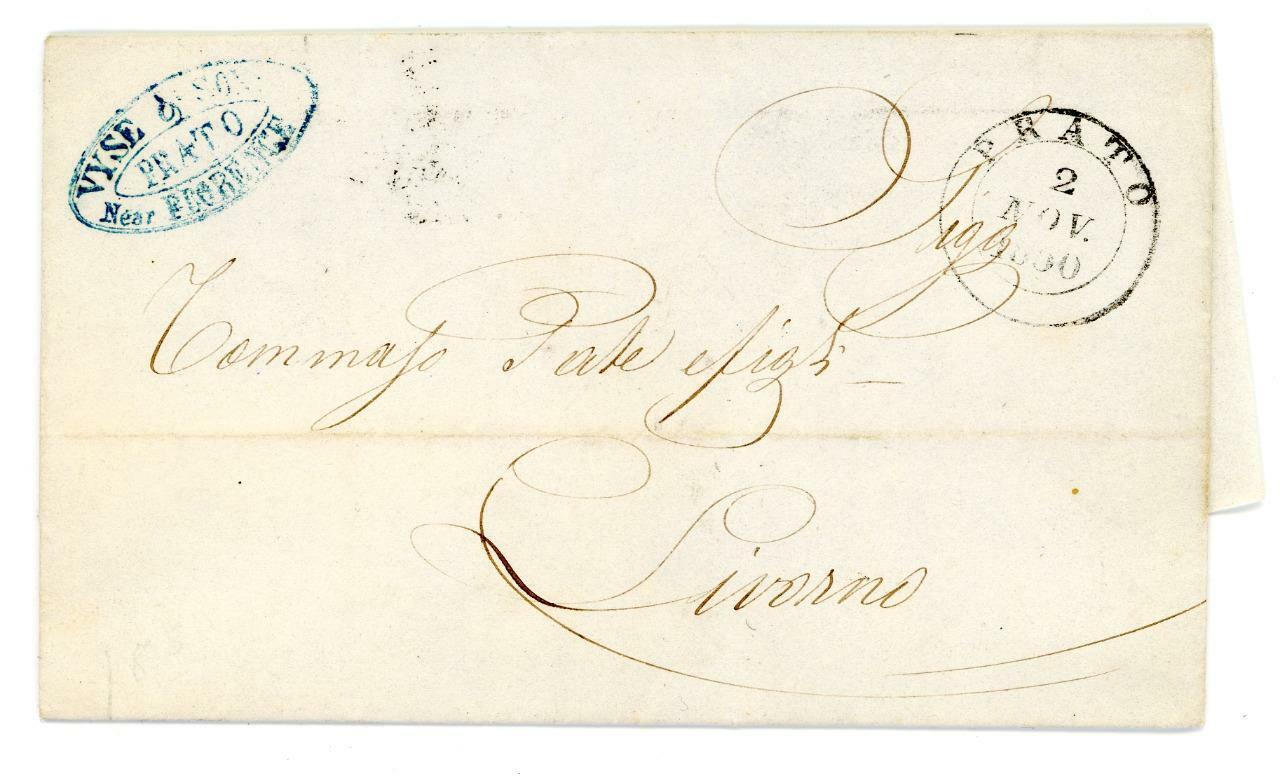 VYSE & SON
PRATO
Near FLORENCE
PRATO
2
NOV.
Sigri
Tommaso Pate e figli
Livorno